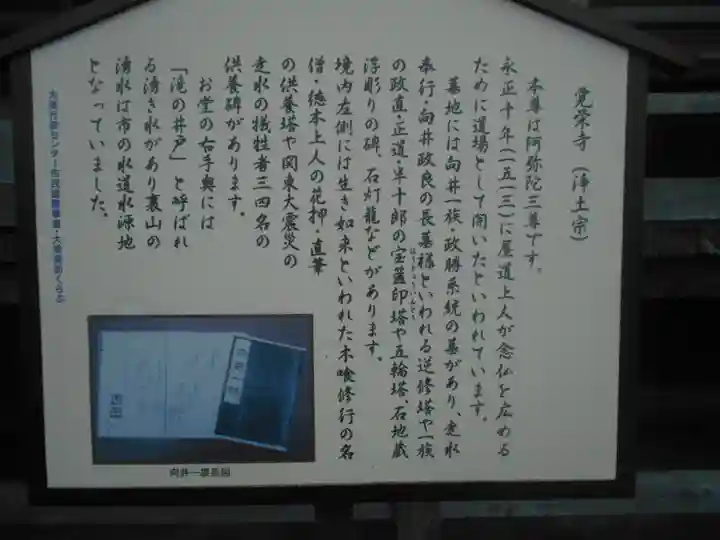 覚栄寺(浄土宗)
本尊は阿弥陀三尊です。
永正十年(一五一三)に屋道上人が念仏を広める
ために道場として開いたといわれています。
墓地には向井一族・政勝系統の墓があり、走水
奉行・向井政良の長墓様といわれる逆修塔や一族
の政直・正道・半十郎の宝篋印塔や五輪塔、石地蔵
ほうきょういんとう
浮彫りの碑、石灯籠などがあります。
境内左側には生き如来といわれた木喰修行の名
僧・徳本上人の花押・直筆
の供養塔や関東大震災の
走水の犠牲者三四名の
供養碑があります。
お堂の右手奥には
「滝の井戸」と呼ばれ
る湧き水があり裏山の
湧水は市の水道水源地
となっていました。
大津行政センター市民協働事業・大津探訪くらぶ
向井